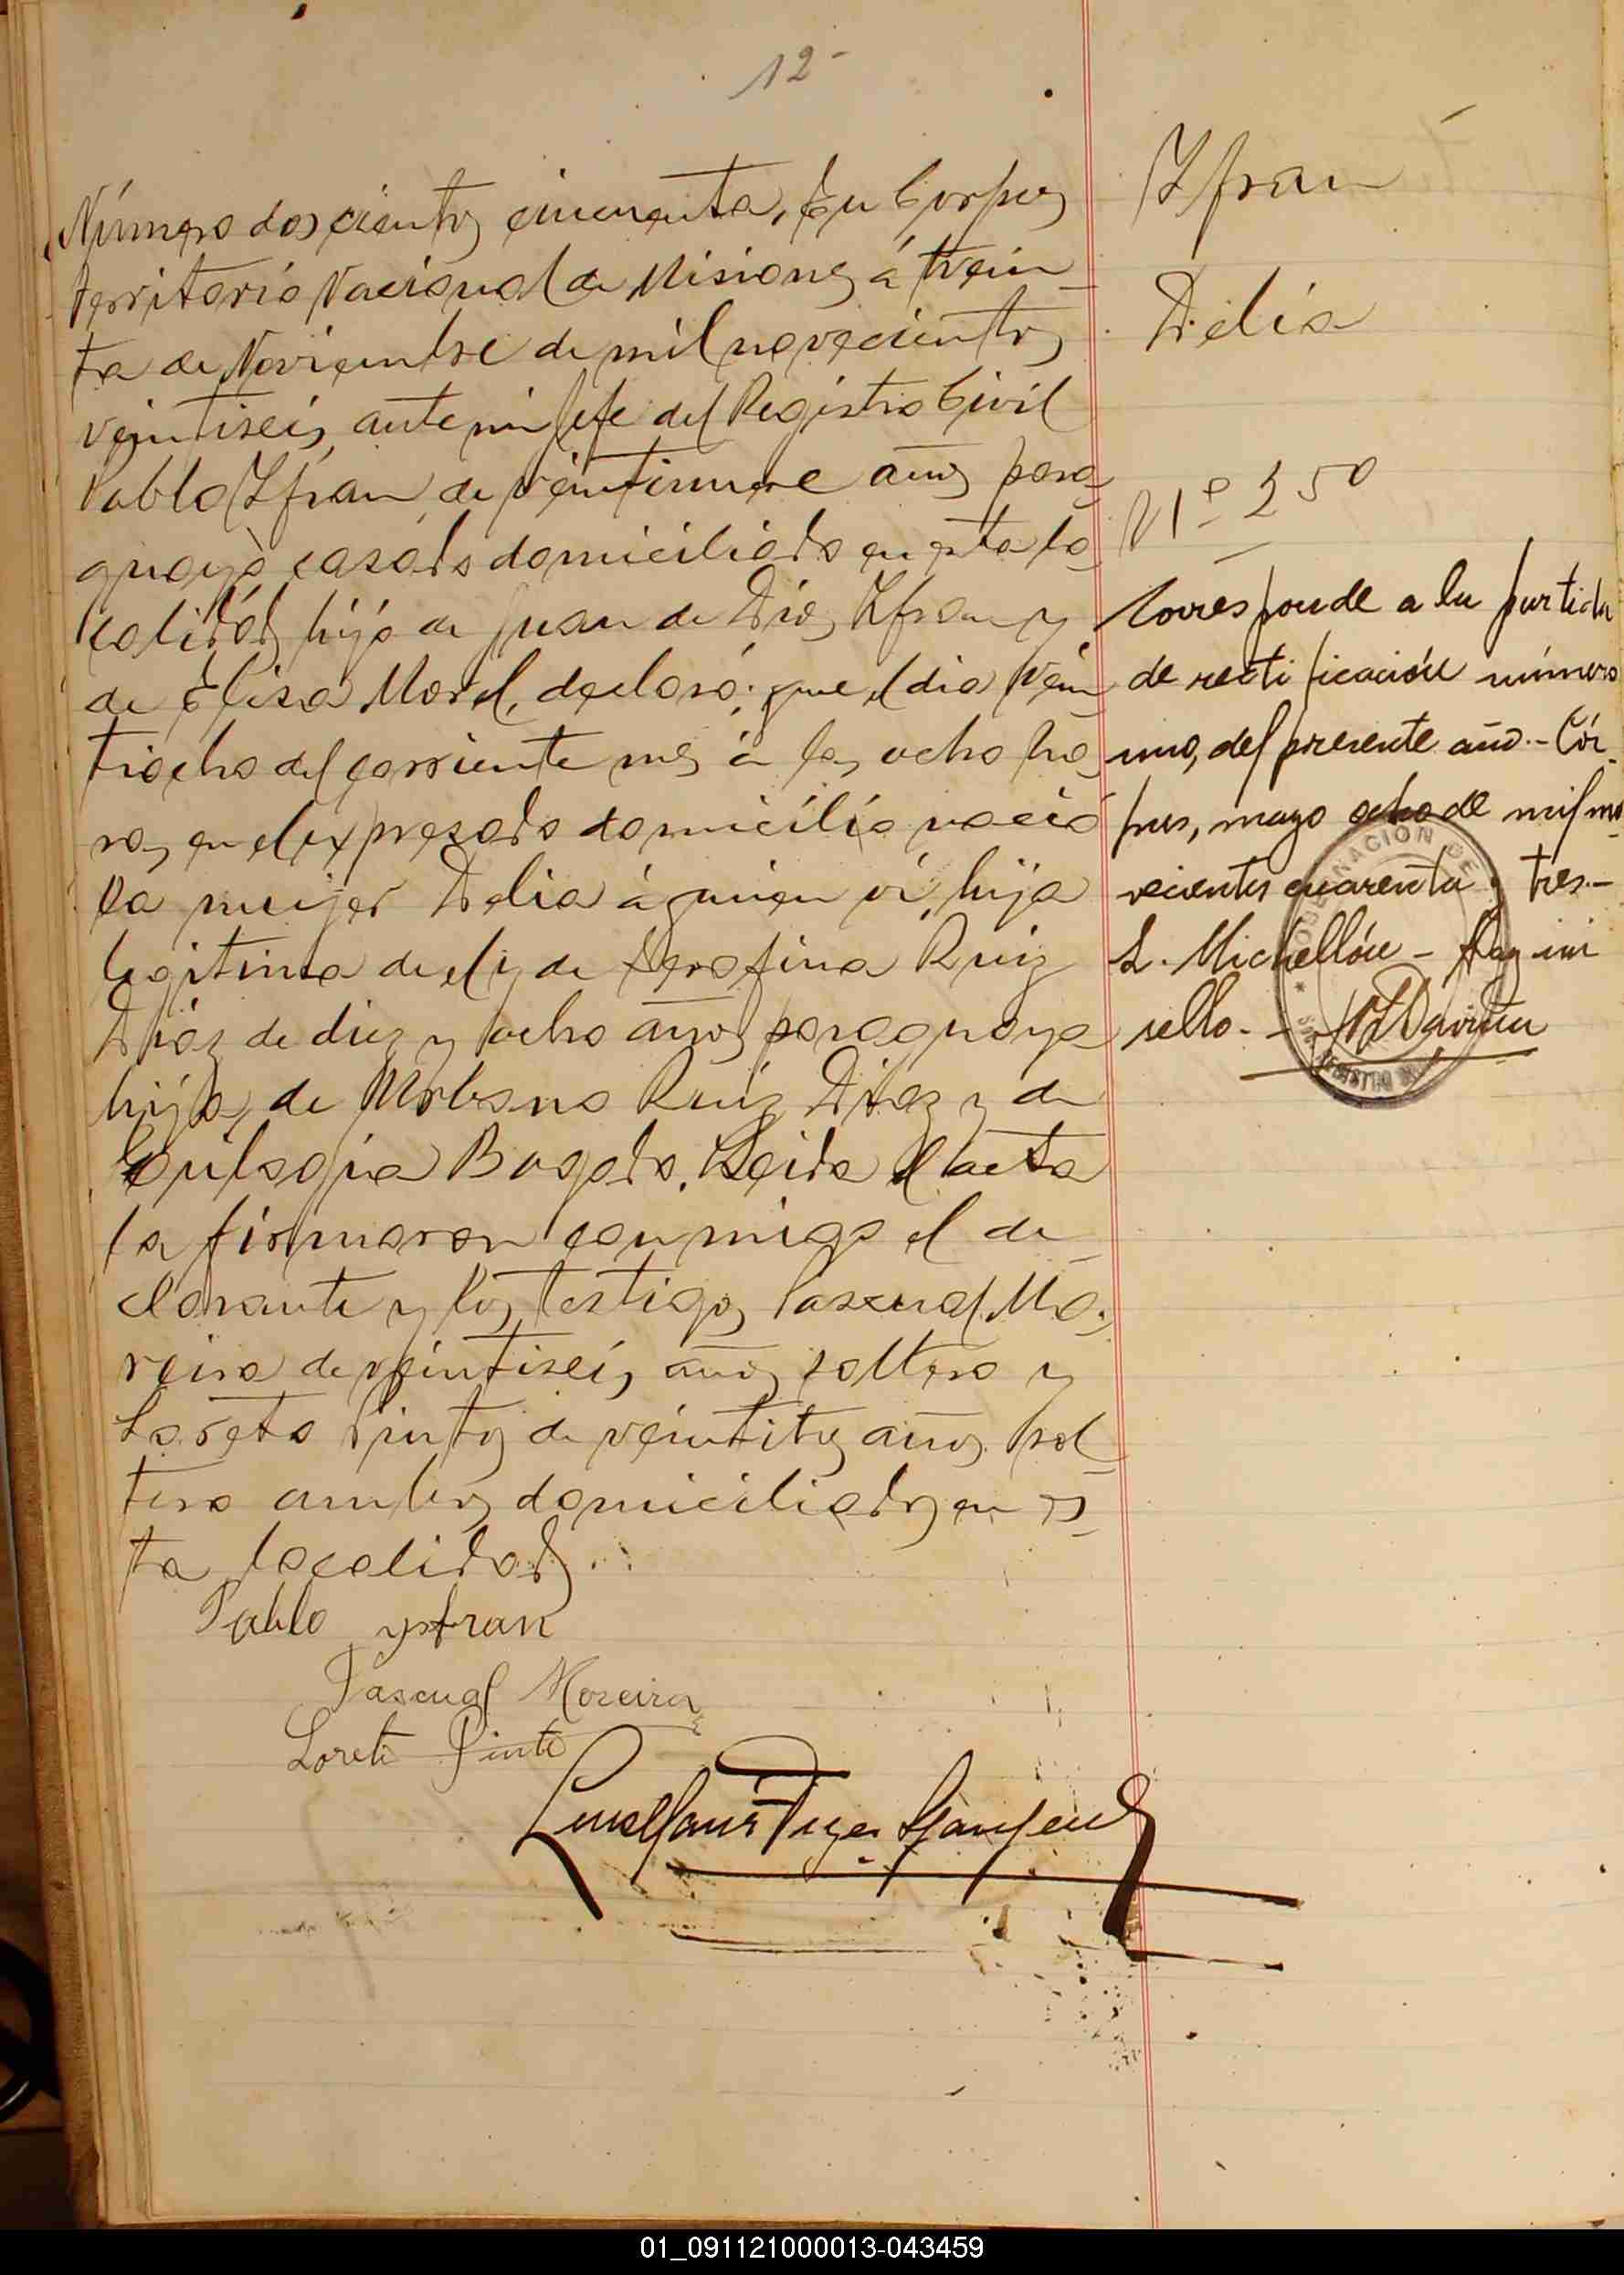 12-
Número doscientos cincuenta, En Corpus
territorio Nacional de Misiones á trein
ta de Noviembre de mil novecientos
veintiseis, ante mi Jefe del Registro Civil
Pablo Yfran, de veintinueve años para
guayo casado domiciliado en esta lo
calidad, hijo de Juan de Dios Yfran y
de Elisa Morel, declaró: que el dia vein
tiocho del corriente mes á las ocho ho
ras en el expresado domicilio nació
la mujer Delia á quien ví, hija
legitima de el y de Serafina Ruiz
Diaz de diez y ocho años paraguaya
hija de Urbano Ruiz Diaz y de
Bogado. Leida el acta
la firmaron conmigo el de
clarante y los testigos Pascual Mo
reira de veintiseis años soltero y
Loreto Pintos de años sol
tero ambos domiciliados en es
ta localidad.
Pablo ysfran
Pascual Moreira
Loreto Pinto
Yfran
Delia
Nº 250
Corresponde a la partida
de rectificación número
uno, del presente año.- Cór-
pus, mayo ocho de mil no
vecientos cuarenta y tres.-
L. Michellón - Hay un
sello. -
GOBERNACION DE
REGISTRO
01_091121000013-043459